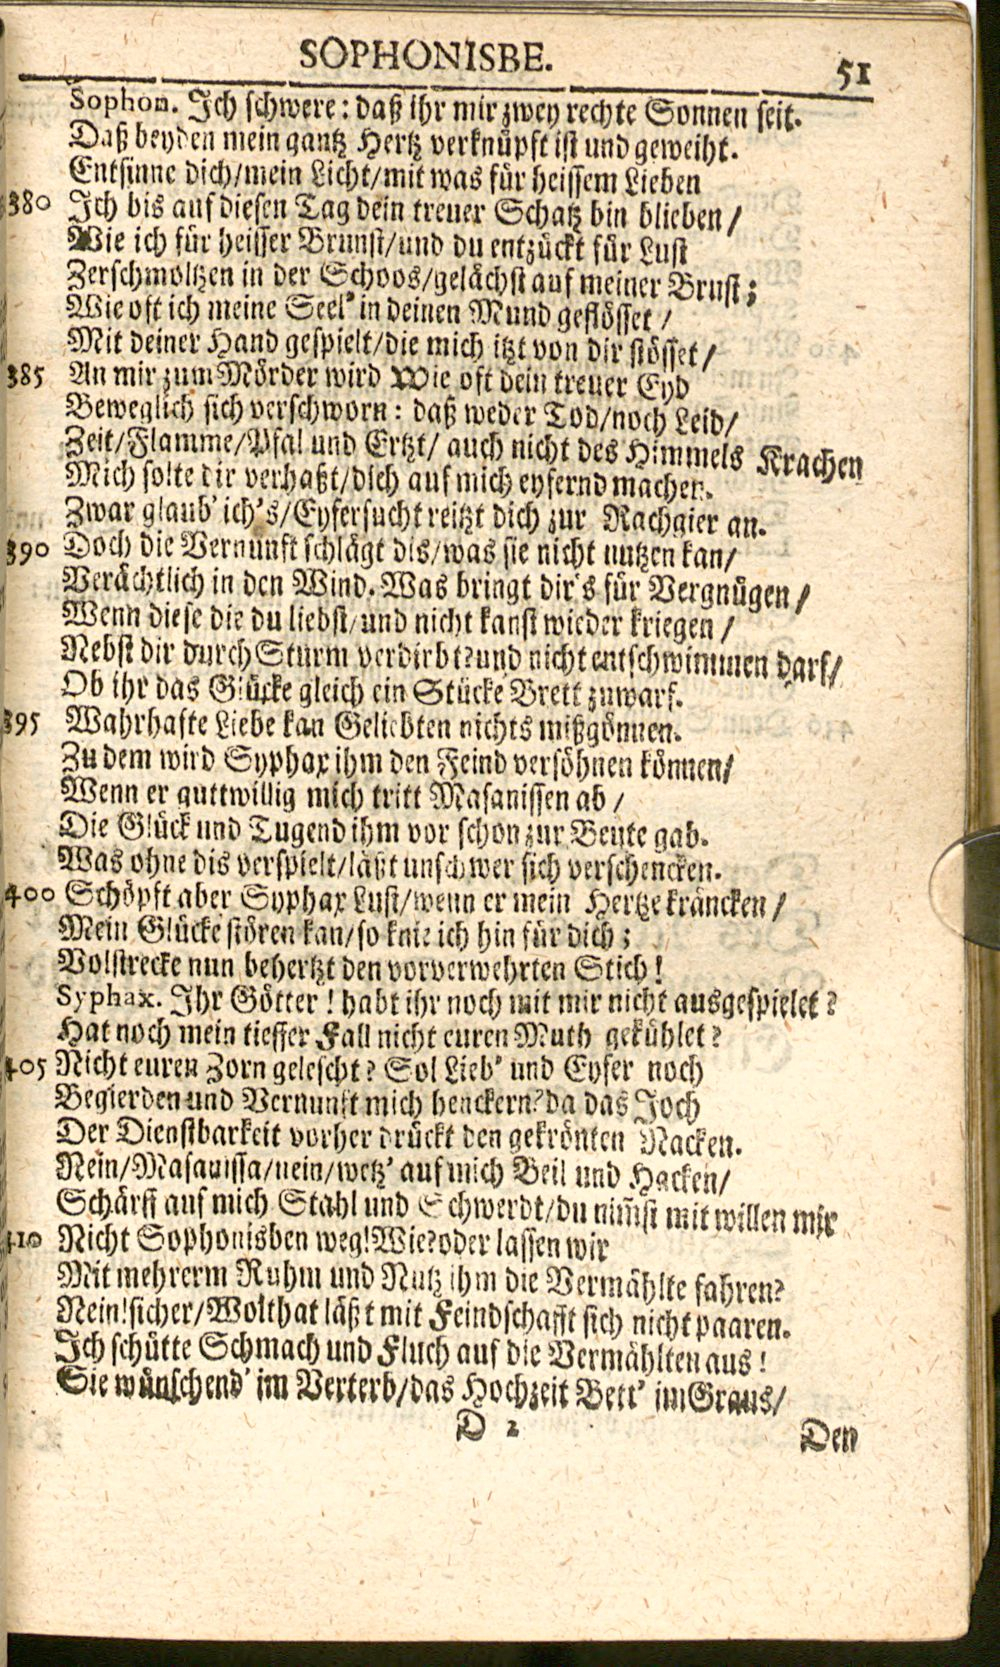 SOPHONISBE. 51
Sophon. Ich schwere: daß ihr mir zwey rechte Sonnen seit.
Daß beyden mein gantz Hertz verknüpft ist und geweiht.
Entsinne dich/mein Licht/mit was für heissem Lieben
380 Ich bis auf diesen Tag dein treuer Schatz bin blieben/
Wie ich für heisser Brunst/und du entzückt für Lust
Zerschmoltzen in der Schoos/gelächst auf meiner Brust;
Wie oft ich meine Seel' in deinen Mund geflösset/
Mit deiner Hand gespielt/die mich itzt von dir stösset/
385 An mir zum Mörder wird Wie oft dein treuer Eyd
Beweglich sich verschworn: daß weder Tod/noch Leid/
Zeit/Flamme/Pfal und Ertzt/ auch nicht des Himmels Krachen
Mich solte dir verhaßt/dich auf mich eyfernd machen.
Zwar glaub' ich's/Eyfersucht reitzt dich zur Rachgier an.
390 Doch die Vernunft schlägt dis/was sie nicht nutzen kan/
Verächtlich in den Wind. Was bringt dir's für Vergnügen/
Wenn diese die du liebst/und nicht kanst wieder kriegen/
Nebst dir durch Sturm verdirbt?und nicht entschwimmen darf/
Ob ihr das Glücke gleich ein Stücke Brett zuwarf.
395 Wahrhafte Liebe kan Geliebten nichts mißgönnen.
Zu dem wird Syphax ihm den Feind versöhnen können/
Wenn er guttwillig mich tritt Masanissen ab/
Die Glück und Tugend ihm vor schon zur Beute gab.
Was ohne dis verspielt/läßt unschwer sich verschencken.
400 Schöpft aber Syphax Lust/wenn er mein Hertze kräncken/
Mein Glücke stören kan/so knie ich hin für dich;
Volstrecke nun behertzt den vorverwehrten Stich!
Syphax. Ihr Götter! habt ihr noch mit mir nicht ausgespielet?
Hat noch mein tiesser Fall nicht euren Muth gekühlet?
405 Nicht euren Zorn gelescht? Sol Lieb' und Eyfer noch
Begierden und Vernunft mich henckern?da das Joch
Der Dienstbarkeit vorher drückt den gekrönten Nacken.
Nein/Masanissa/nein/wetz' auf mich Beil und Hacken/
Schärff auf mich Stahl und Schwerdt/du nim̃st mit willen mir
410 Nicht Sophonisben weg!Wie?oder lassen wir
Mit mehrerm Ruhm und Nutz ihm die Vermählte fahren?
Nein!sicher/Wolthat läßt mit Feindschafft sich nicht paaren.
Ich schütte Schmach und Fluch auf die Vermählten aus!
Sie wünschend' im Verterb/das Hochzeit Bett' im Graus/
D 2
Den